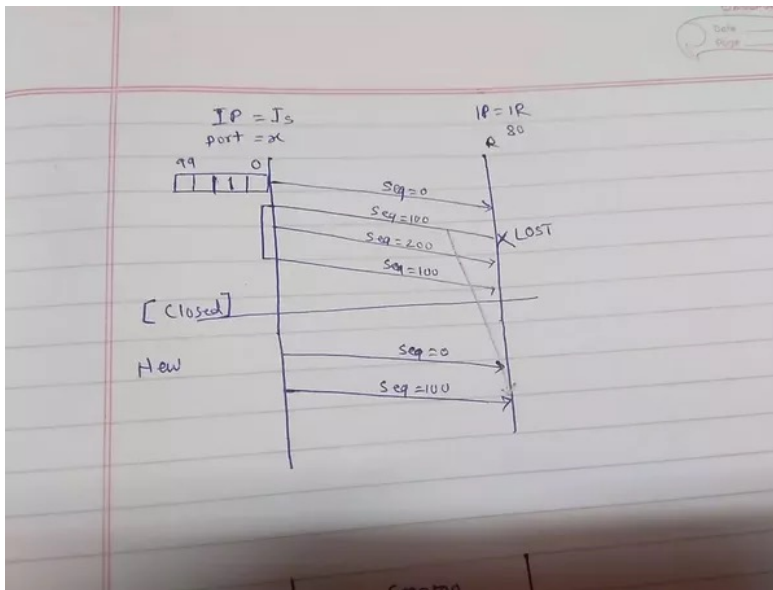 Date
Page
IP = Is
port = x
IP = IR
80
R
99 0
Seq=0
Seq=100
LOST
Seq=200
Seq=100
[Closed]
New
Seq=0
Seq=100